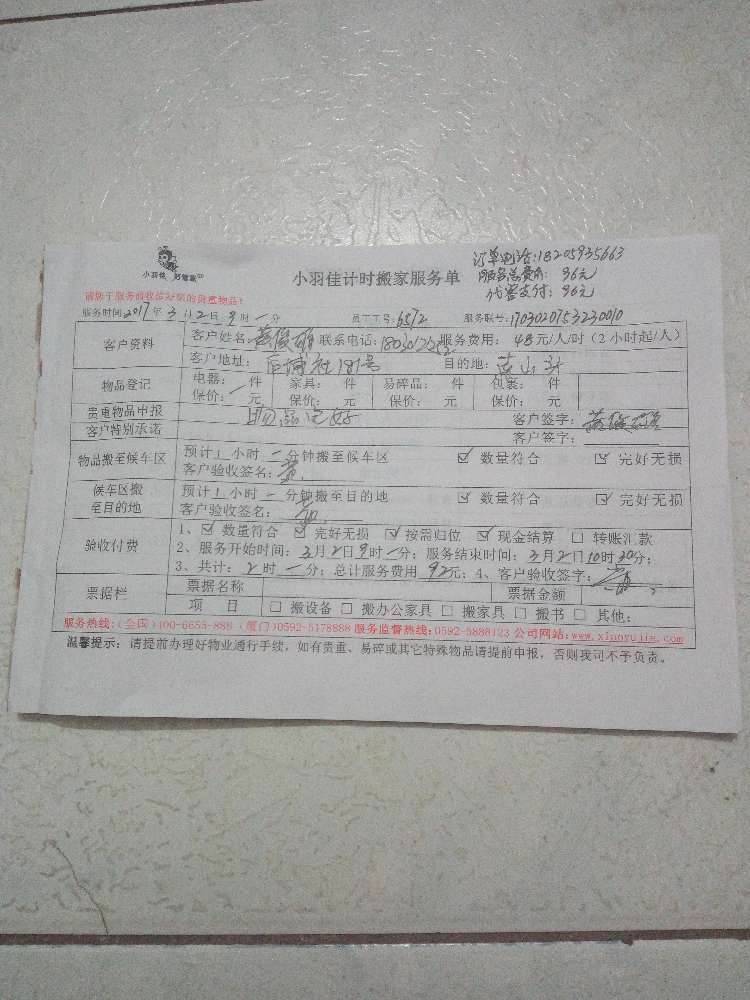 小羽佳 好管家
小羽佳计时搬家服务单
订单电话:18205935663
服务总费用: 96元
代客支付: 96元
请您于服务前收拾好您的贵重物品!
服务时间2017年3月2日9时一分 员工工号:6572 服务联号:1703020753230010
客户资料 客户姓名:黄俊雄 联系电话: 服务费用: 48元/人/时(2小时起/人)
客户地址: 后埔社181号 目的地:
物品登记 电器: 件 家具: 件 易碎品: 件 包裹: 件
保价: 元 保价: 元 保价: 元 保价: 元
贵重物品申报 物品完好 客户签字:
客户特别承诺 客户签字:
物品搬至候车区 预计1小时一分钟搬至候车区 ☑ 数量符合 ☑ 完好无损
客户验收签名:
候车区搬至目的地 预计1小时一分钟搬至目的地 ☑ 数量符合 ☑ 完好无损
客户验收签名:
验收付费 1、☑ 数量符合 ☑ 完好无损 ☑ 按需归位 ☑ 现金结算 □ 转账汇款
2、服务开始时间:3月2日9时一分;服务结束时间:3月2日10时30分;
3、共计:2时一分;总计服务费用92元;4、客户验收签字:
票据栏 票据名称 票据金额
项 目 □ 搬设备 □ 搬办公家具 □ 搬家具 □ 搬书 □ 其他:
服务热线:(全国)400-6655-888 (厦门)0592-5178888 服务监督热线:0592-5888123 公司网站:www.xiaoyujia.com
温馨提示:请提前办理好物业通行手续,如有贵重、易碎或其它特殊物品请提前申报,否则我司不予负责。